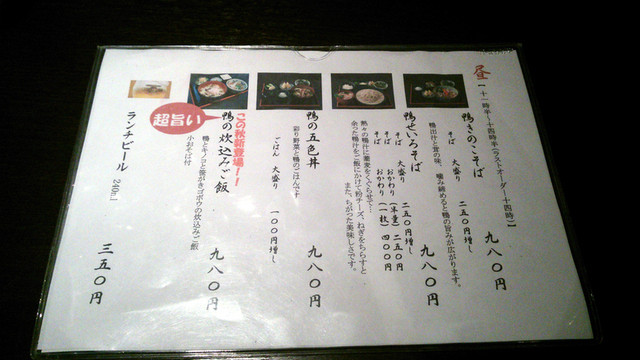 昼【十一時半～十四時半(ラストオーダー十四時)】
鴨きのこそば 九八〇円
そば 大盛り 二五〇円増し
鴨出汁と茸の味、噛み締めると鴨の旨みが広がります。
鴨せいろそば 九八〇円
そば 大盛り 二五〇円増し
そば おかわり(半量)二五〇円
そば おかわり(一枚)四〇〇円
熱々の鴨汁に蕎麦をくぐらせて…
余った鴨汁をご飯にかけて粉チーズ、ねぎをちらすと…
また、ちがった美味しさです。
鴨の五色丼 九八〇円
彩り野菜と鴨のごはんです
ごはん 大盛り 一〇〇円増し
この秋新登場!!
超旨い
鴨の炊込みご飯 九八〇円
鴨とキノコと笹がきゴボウの炊込みご飯
小おそば付
ランチビール 240ml 三五〇円